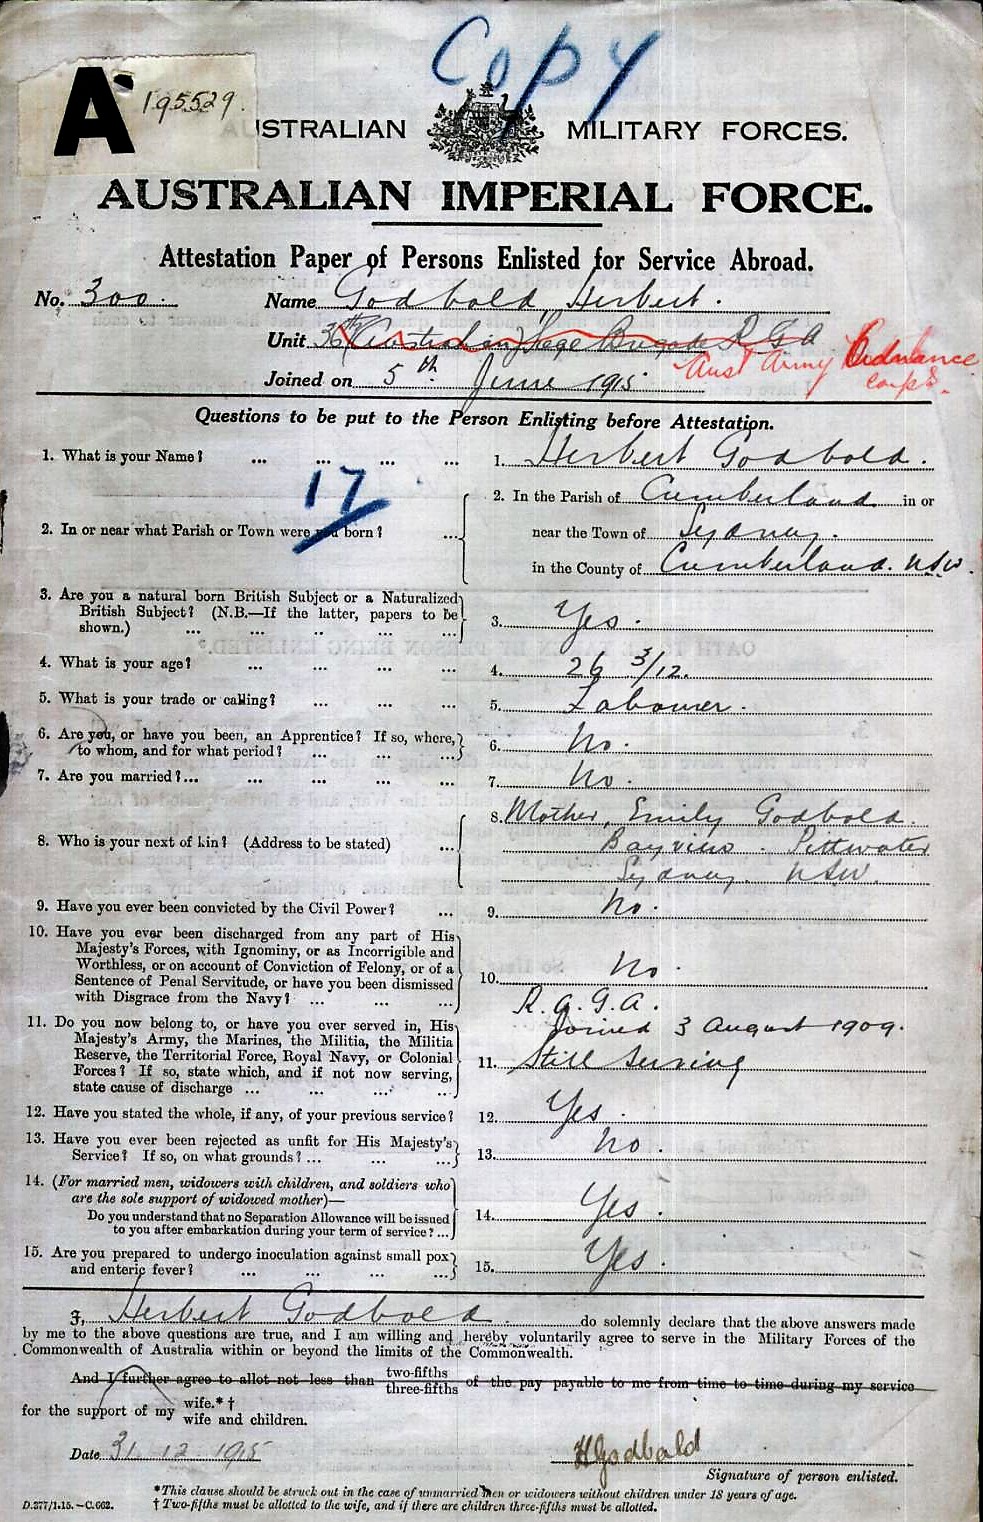 Copy
A 195529.
AUSTRALIAN MILITARY FORCES.
AUSTRALIAN IMPERIAL FORCE.
Attestation Paper of Persons Enlisted for Service Abroad.
No. 300. Name Godbold, Herbert.
Unit 36th (Australian) Siege Brigade R G A
Aust Army Ordnance Corps.
Joined on 5th June 1915
Questions to be put to the Person Enlisting before Attestation.
1. What is your Name? ... ... ... ... 1. Herbert Godbold.
17
2. In or near what Parish or Town were you born? ... 2. In the Parish of Cumberland in or
near the Town of Sydney.
in the County of Cumberland. NSW.
3. Are you a natural born British Subject or a Naturalized
British Subject? (N.B.—If the latter, papers to be
shown.) ... ... .. ... ... 3. Yes.
4. What is your age? ... ... ... ... 4. 26 3/12.
5. What is your trade or calling? ... ... ... 5. Labourer.
6. Are you, or have you been, an Apprentice? If so, where,
to whom, and for what period? ... ... ... 6. No.
7. Are you married?... ... ... ... ... 7. No.
8. Who is your next of kin? (Address to be stated) ... 8. Mother, Emily Godbold.
Bayview. Pittwater
Sydney. NSW.
9. Have you ever been convicted by the Civil Power? ... 9. No.
10. Have you ever been discharged from any part of His
Majesty's Forces, with Ignominy, or as Incorrigible and
Worthless, or on account of Conviction of Felony, or of a
Sentence of Penal Servitude, or have you been dismissed
with Disgrace from the Navy? ... ... ... 10. No.
11. Do you now belong to, or have you ever served in, His
Majesty's Army, the Marines, the Militia, the Militia
Reserve, the Territorial Force, Royal Navy, or Colonial
Forces? If so, state which, and if not now serving,
state cause of discharge ... ... ... ... 11. R.A.G.A.
Joined 3 August 1909.
Still Serving
12. Have you stated the whole, if any, of your previous service? 12. Yes.
13. Have you ever been rejected as unfit for His Majesty's
Service? If so, on what grounds? ... ... ... 13. No.
14. (For married men, widowers with children, and soldiers who
are the sole support of widowed mother)—
Do you understand that no Separation Allowance will be issued
to you after embarkation during your term of service? ... 14. Yes.
15. Are you prepared to undergo inoculation against small pox
and enteric fever? ... ... ... ... 15. Yes.
I, Herbert Godbold do solemnly declare that the above answers made
by me to the above questions are true, and I am willing and hereby voluntarily agree to serve in the Military Forces of the
Commonwealth of Australia within or beyond the limits of the Commonwealth.
And I further agree to allot not less than two-fifths three-fifths of the pay payable to me from time to time during my service
for the support of my wife.*† wife and children.
Date 31. 12. 1915 HGodbold
Signature of person enlisted.
*This clause should be struck out in the case of unmarried men or widowers without children under 18 years of age.
D.277/1.15.—C.662. † Two-fifths must be allotted to the wife, and if there are children three-fifths must be allotted.